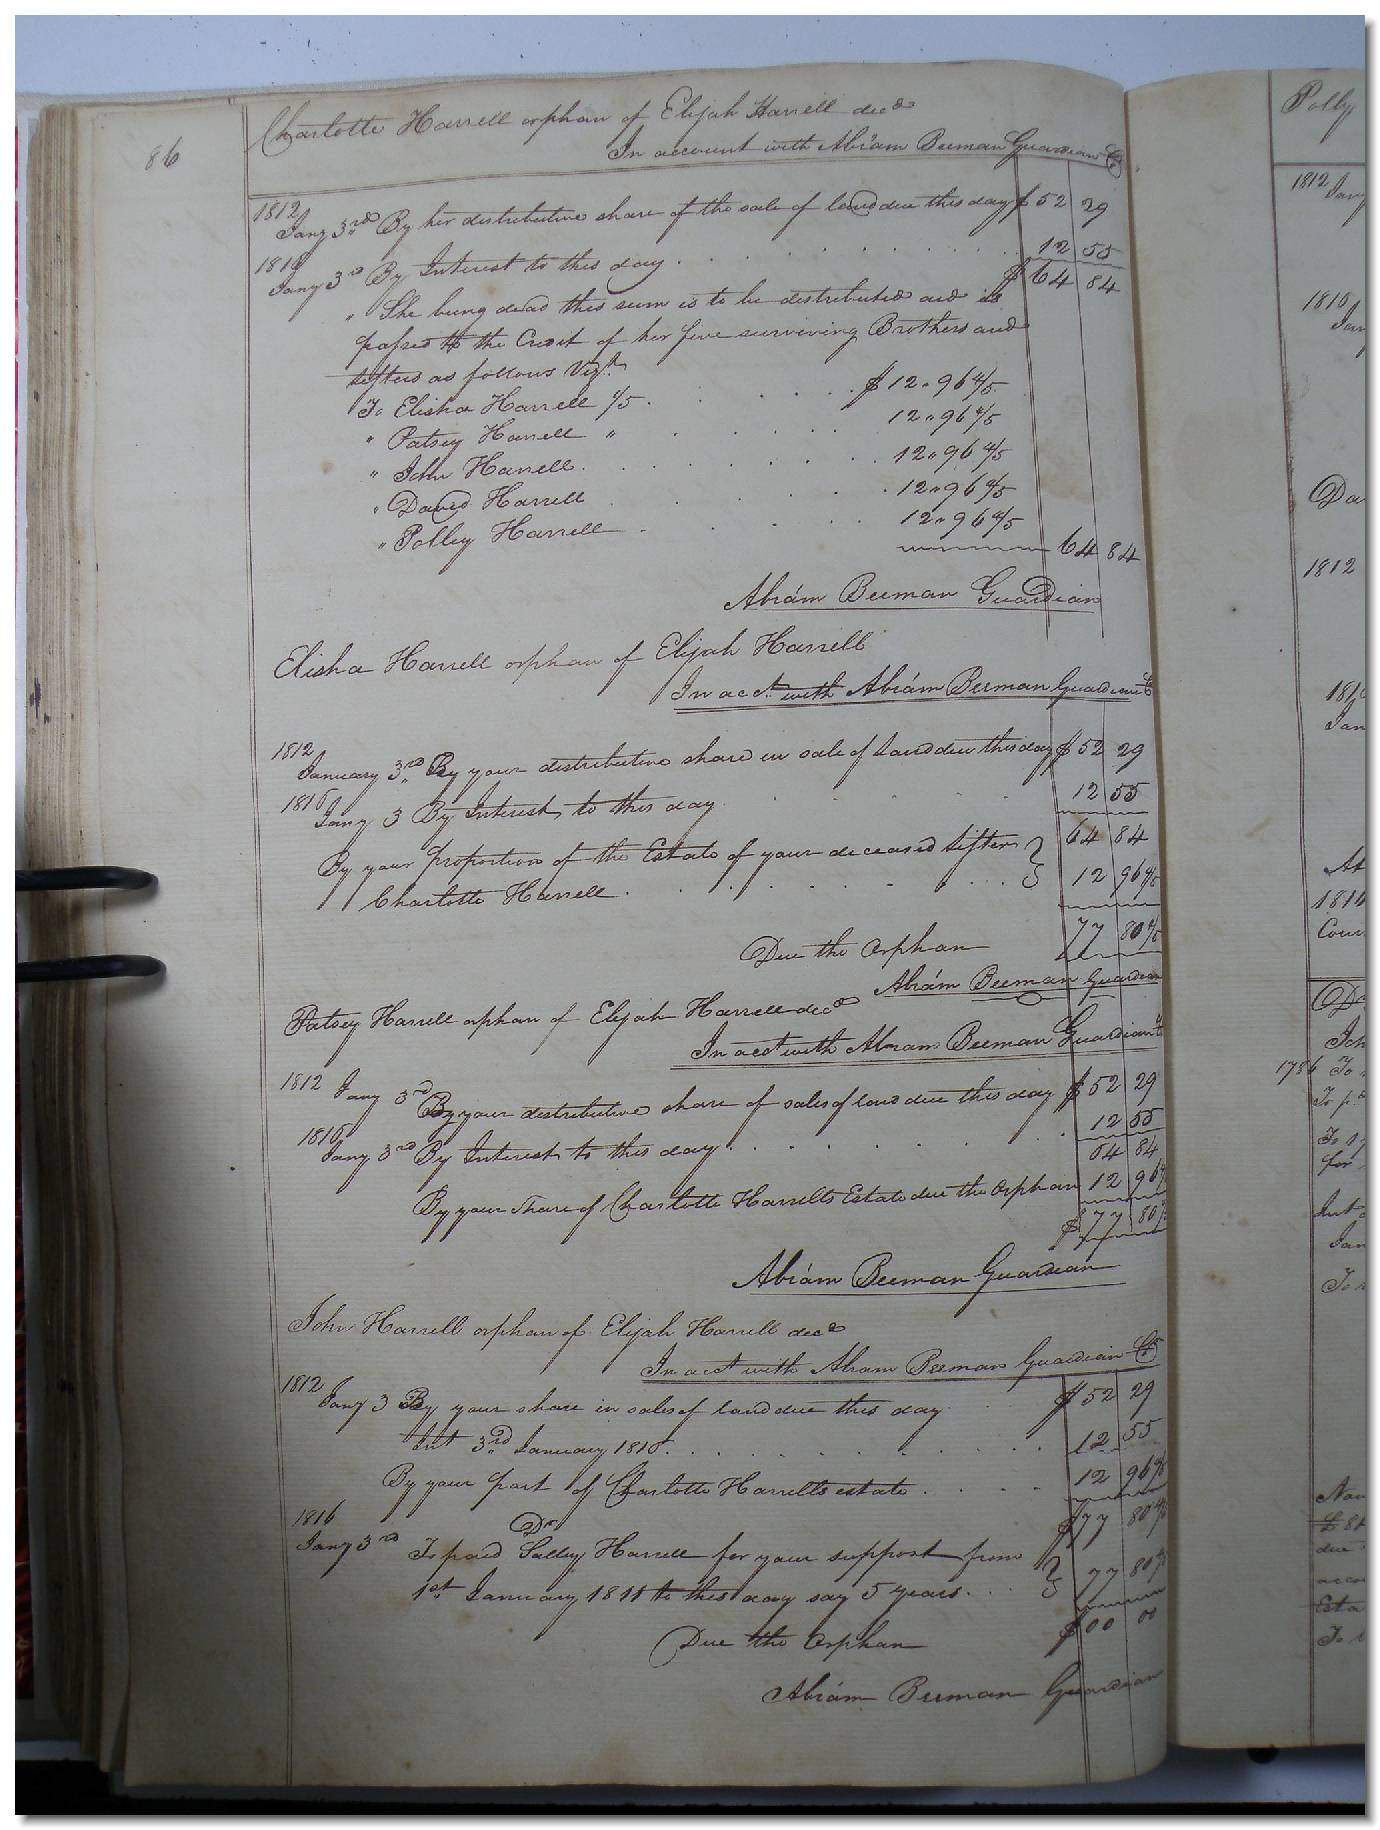 86
Charlotte Harrell orphan of Elijah Harrell decd
In account with Abrám Beeman Guardian Cr
1812
Jany 3rd By her distributive share of the sale of land due this day $ 52 29
1816
Jany 3rd By Interest to this day . . . . . . . 12 55
$ 64 84
" She being dead this sum is to be distributed and is
passed to the Credit of her five surviving Brothers and
sisters as follows Vizt.
To Elisha Harrell 1/5 . . . . $ 12 " 96 4/5
" Patsey Harrell " . . . . . 12 " 96 4/5
" John Harrell . . . . . . 12 " 96 4/5
" David Harrell . . . . . 12 " 96 4/5
" Polley Harrell . . . . . 12 " 96 4/5
64 84
Abrám Beeman Guardian
Elisha Harrell orphan of Elijah Harrell
In acct. with Abrám Beeman Guardian Cr
1812
January 3rd By your distributive share in sale of Land due this day $ 52 29
1816
Jany 3 By Interest to this day . . . . . 12 55
64 84
By your proportion of the Estate of your deceased Sister }
Charlotte Harrell . . . . . . . } 12 96 4/5
Due the orphan 77 80 4/5
Abrám Beeman Guardian
Patsey Harrell orphan of Elijah Harrell decd
In acct with Abram Beeman Guardian Cr
1812 Jany 3rd By your distributive share of sales of land due this day $ 52 29
1816
Jany 3rd By Interest to this day . . . . . . . 12 55
64 84
By your Share of Charlotte Harrells Estate due the Orphan 12 96 4/5
$ 77 80 4/5
Abrám Beeman Guardian
John Harrell orphan of Elijah Harrell decd
In acct with Abram Beeman Guardian Cr
1812
Jany 3 By your share in sales of land due this day $ 52 29
Int 3rd January 1816 . . . . . . . . 12 55
By your part of Charlotte Harrells estate . . . . 12 96 4/5
1816 $ 77 80 4/5
Dr
Jany 3rd To paid Salley Harrell for your support from }
1st January 1811 to this day say 5 years . . . } 77 80 4/5
Due the orphan $ 00 00
Abrám Beeman Guardian
Polly
1812 Jany
1816
Jan
Da
1812
1816
Jan
1816
Cour
1786 To
To
for
Jan
Nov
due
Esta
To